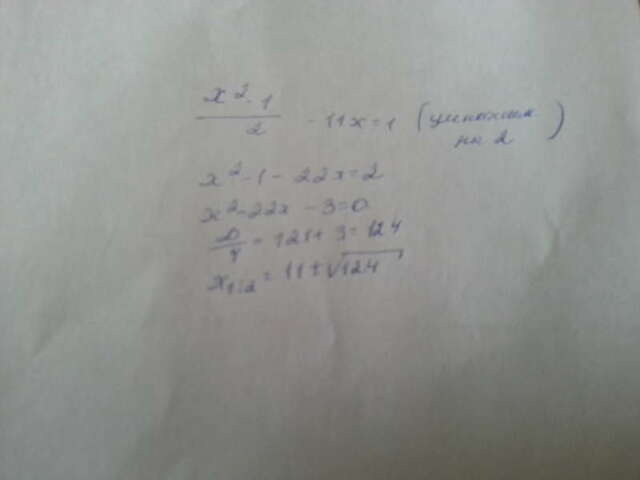 x²-1
―
2 - 11x = 1 (умножим
на 2)
x² - 1 - 22x = 2
x² - 22x - 3 = 0
D/4 = 121 + 3 = 124
x₁,₂ = 11 ± √124